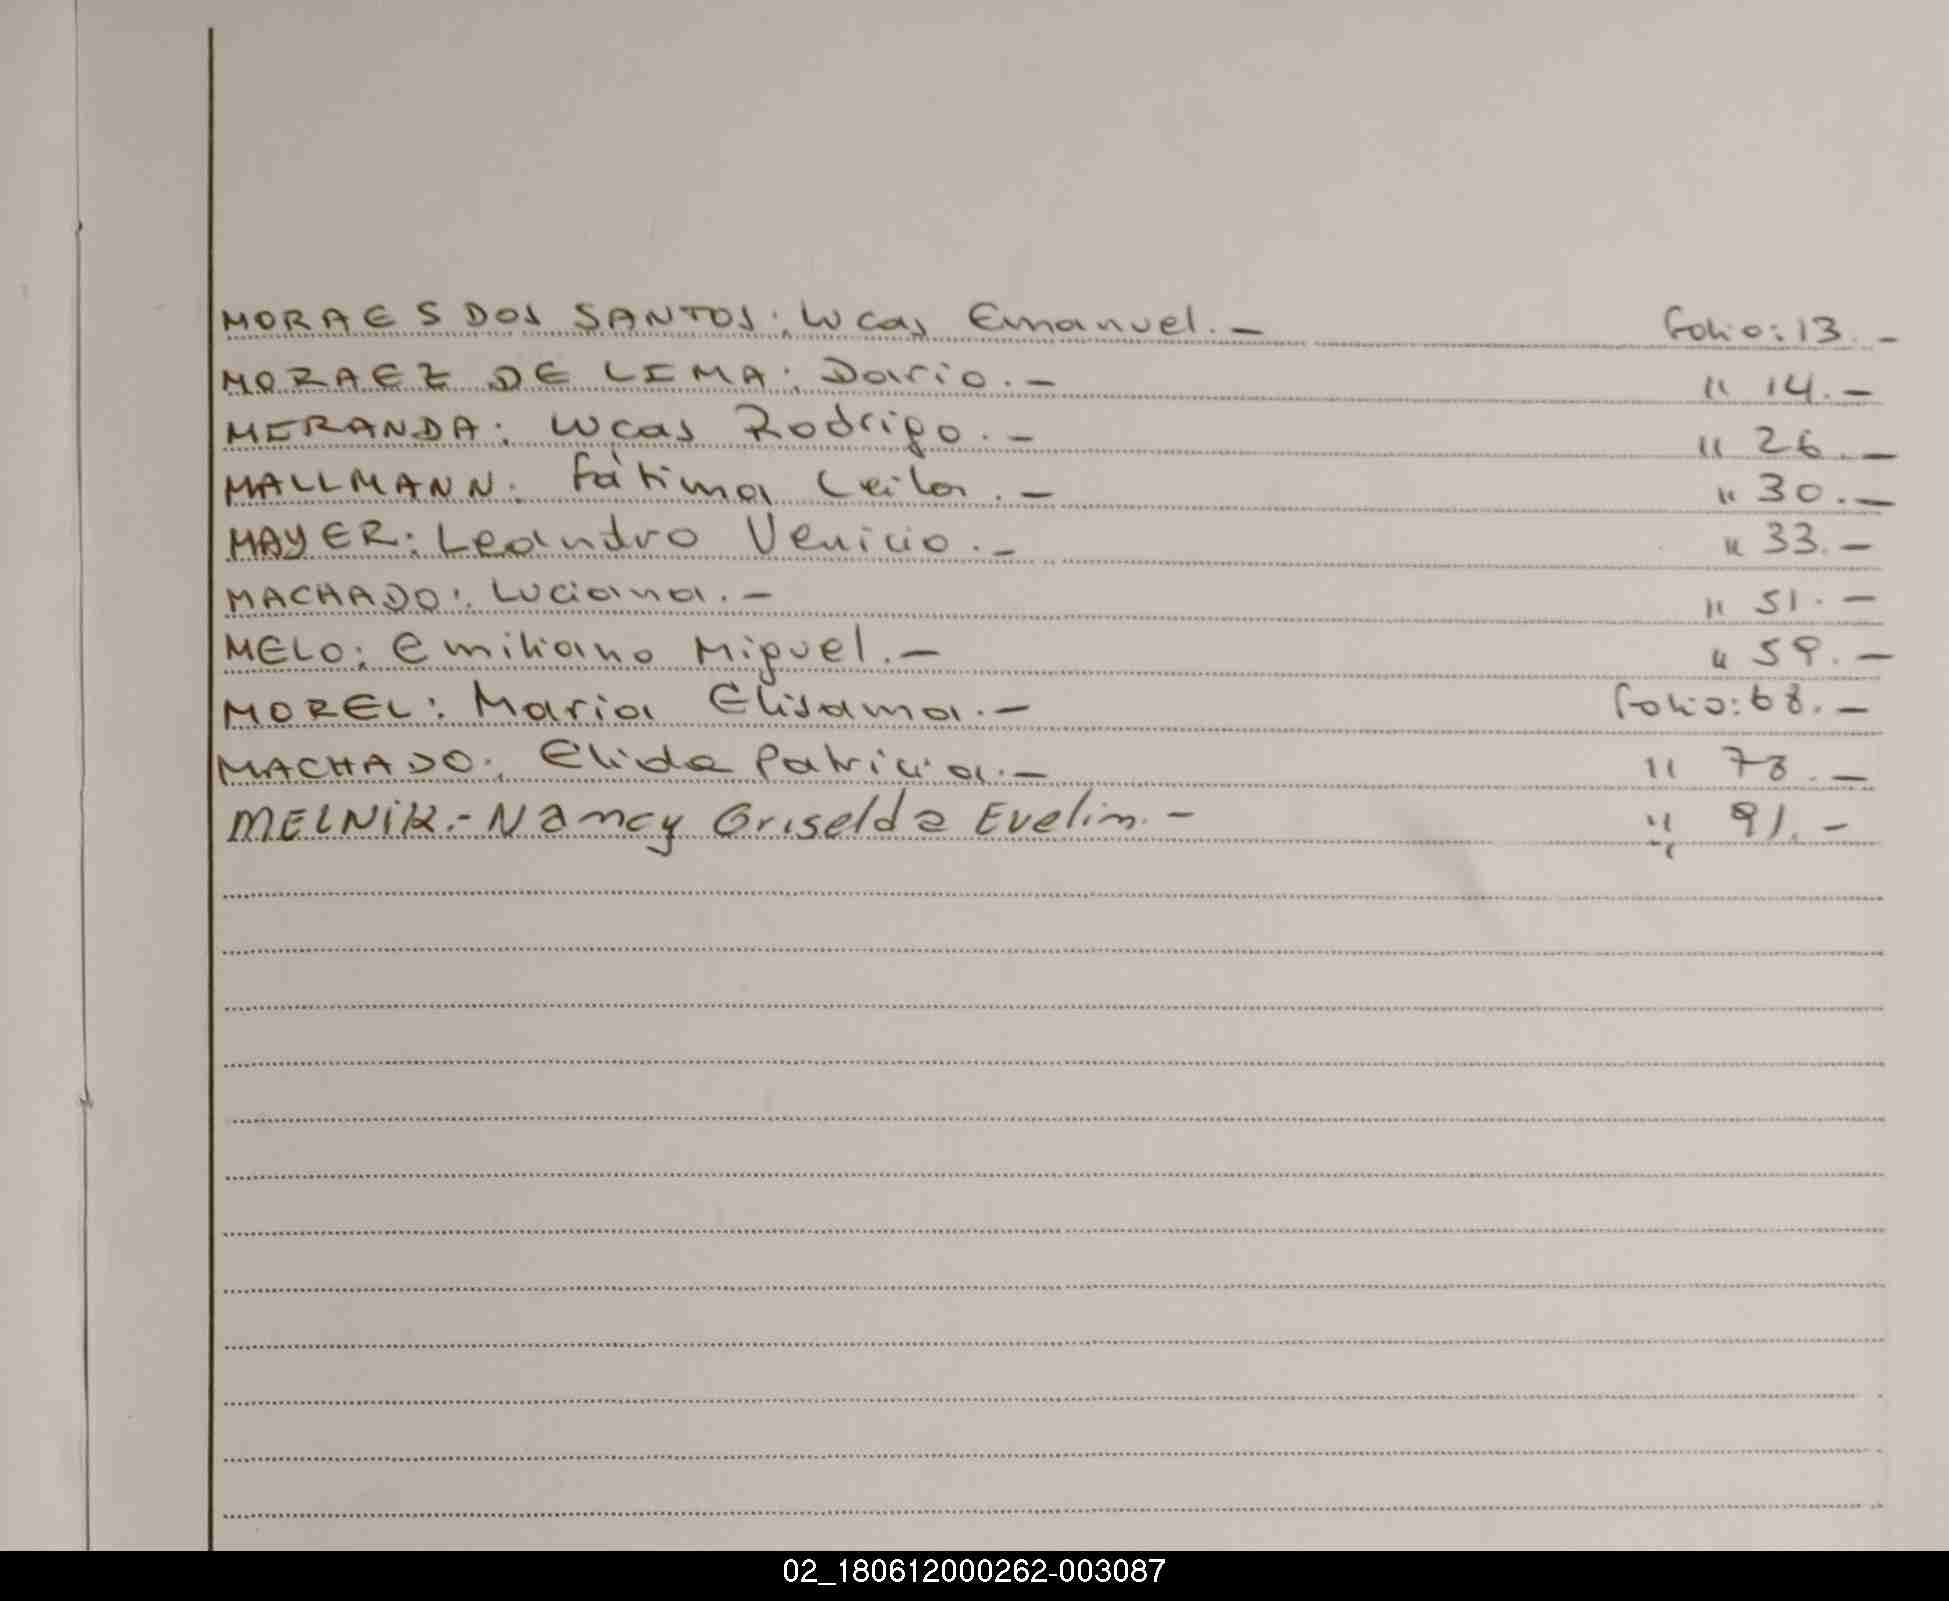 MORAES DOS SANTOS: Lucas Emanuel.— folio: 13.—
MORAEZ DE LIMA: Dario.— " 14.—
MERANDA: Lucas Rodrigo.— " 26.—
MALLMANN: Fátima Leila.— " 30.—
MAYER: Leandro Venicio.— " 33.—
MACHADO: Luciana.— " 51.—
MELO: Emiliano Miguel.— " 59.—
MOREL: Maria Elisama.— folio: 68.—
MACHADO: Elida Patricia.— " 78.—
MELNIK.- Nancy Griselda Evelin.— " 91.—
02_180612000262-003087